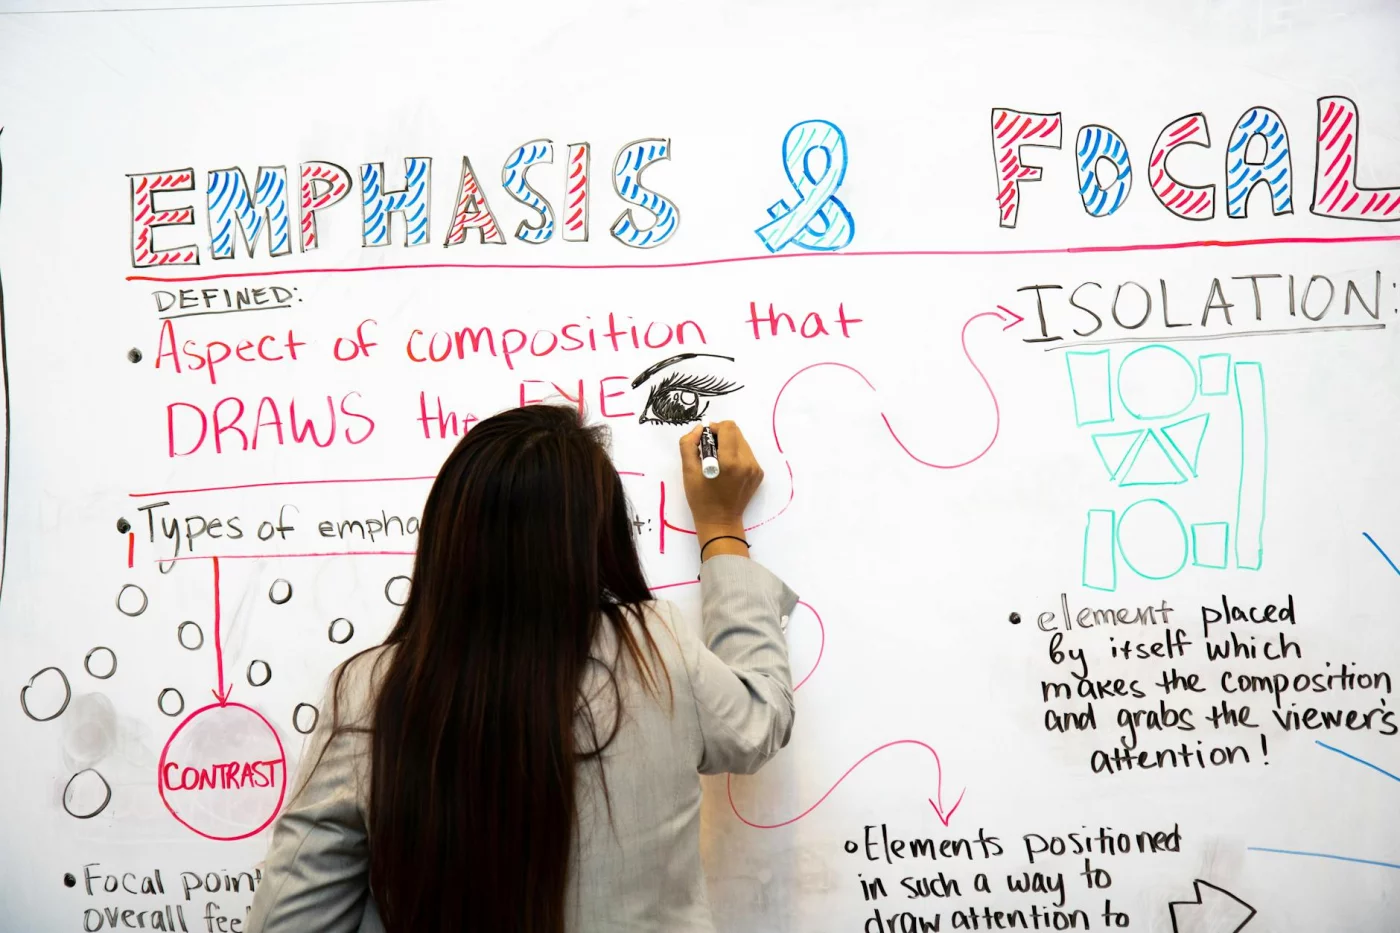 EMPHASIS & FOCAL
DEFINED:
• Aspect of composition that
DRAWS the EYE
• Types of
CONTRAST
• Focal
overall
ISOLATION:
• element placed
by itself which
makes the composition
and grabs the viewer's
attention!
Elements positioned
in such a way to
draw attention to